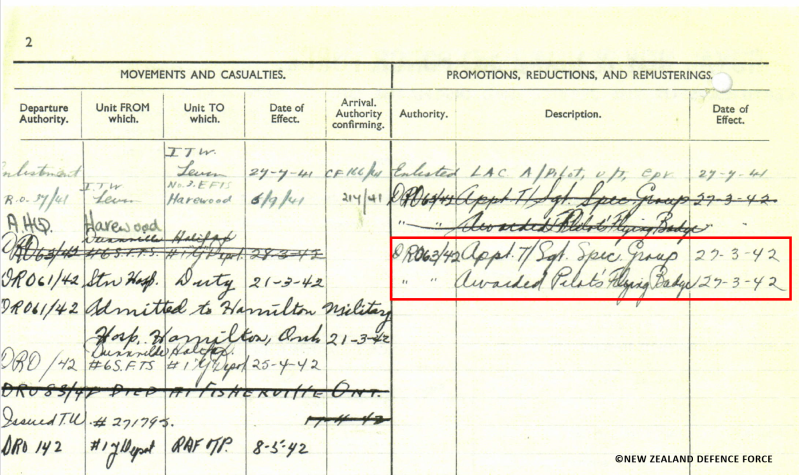 2
MOVEMENTS AND CASUALTIES. PROMOTIONS, REDUCTIONS, AND REMUSTERINGS.
Departure Authority. Unit FROM which. Unit TO which. Date of Effect. Arrival. Authority confirming. Authority. Description. Date of Effect.
I T W.
Enlistment Levin 27-7-41 CF 166/41 Enlisted LAC A/Pilot, u/t, Epr. 27-7-41
I T W No. 3. EFTS
R.O. 37/41 Levin Harewood 6/9/41 214/41 DRO63/42 Appt. T/Sgt. Spec. Group 27-3-42
A.H.Q. Harewood " " Awarded Pilot's Flying Badge
Dunnville Halifax
DRO63/42 #6 S.F.T.S #1 Y Depot 28-3-42 DRO63/42 Appt. T/Sgt. Spec. Group 27-3-42
DRO61/42 Stn Hosp. Duty 21-3-42 " " Awarded Pilot's Flying Badge 27-3-42
DRO61/42 Admitted to Hamilton Military
Hosp. Hamilton, Ont. 21-3-42
Dunnville Halifax.
DRO /42 #6 S.F.T.S #1 Y Depot 25-4-42
DRO 83/42 DIED AT FISHERVILLE ONT.
Issued T.W. # 271795. 17-4-42
DRO 142 #1 Y Depot RAF T.P. 8-5-42
©NEW ZEALAND DEFENCE FORCE